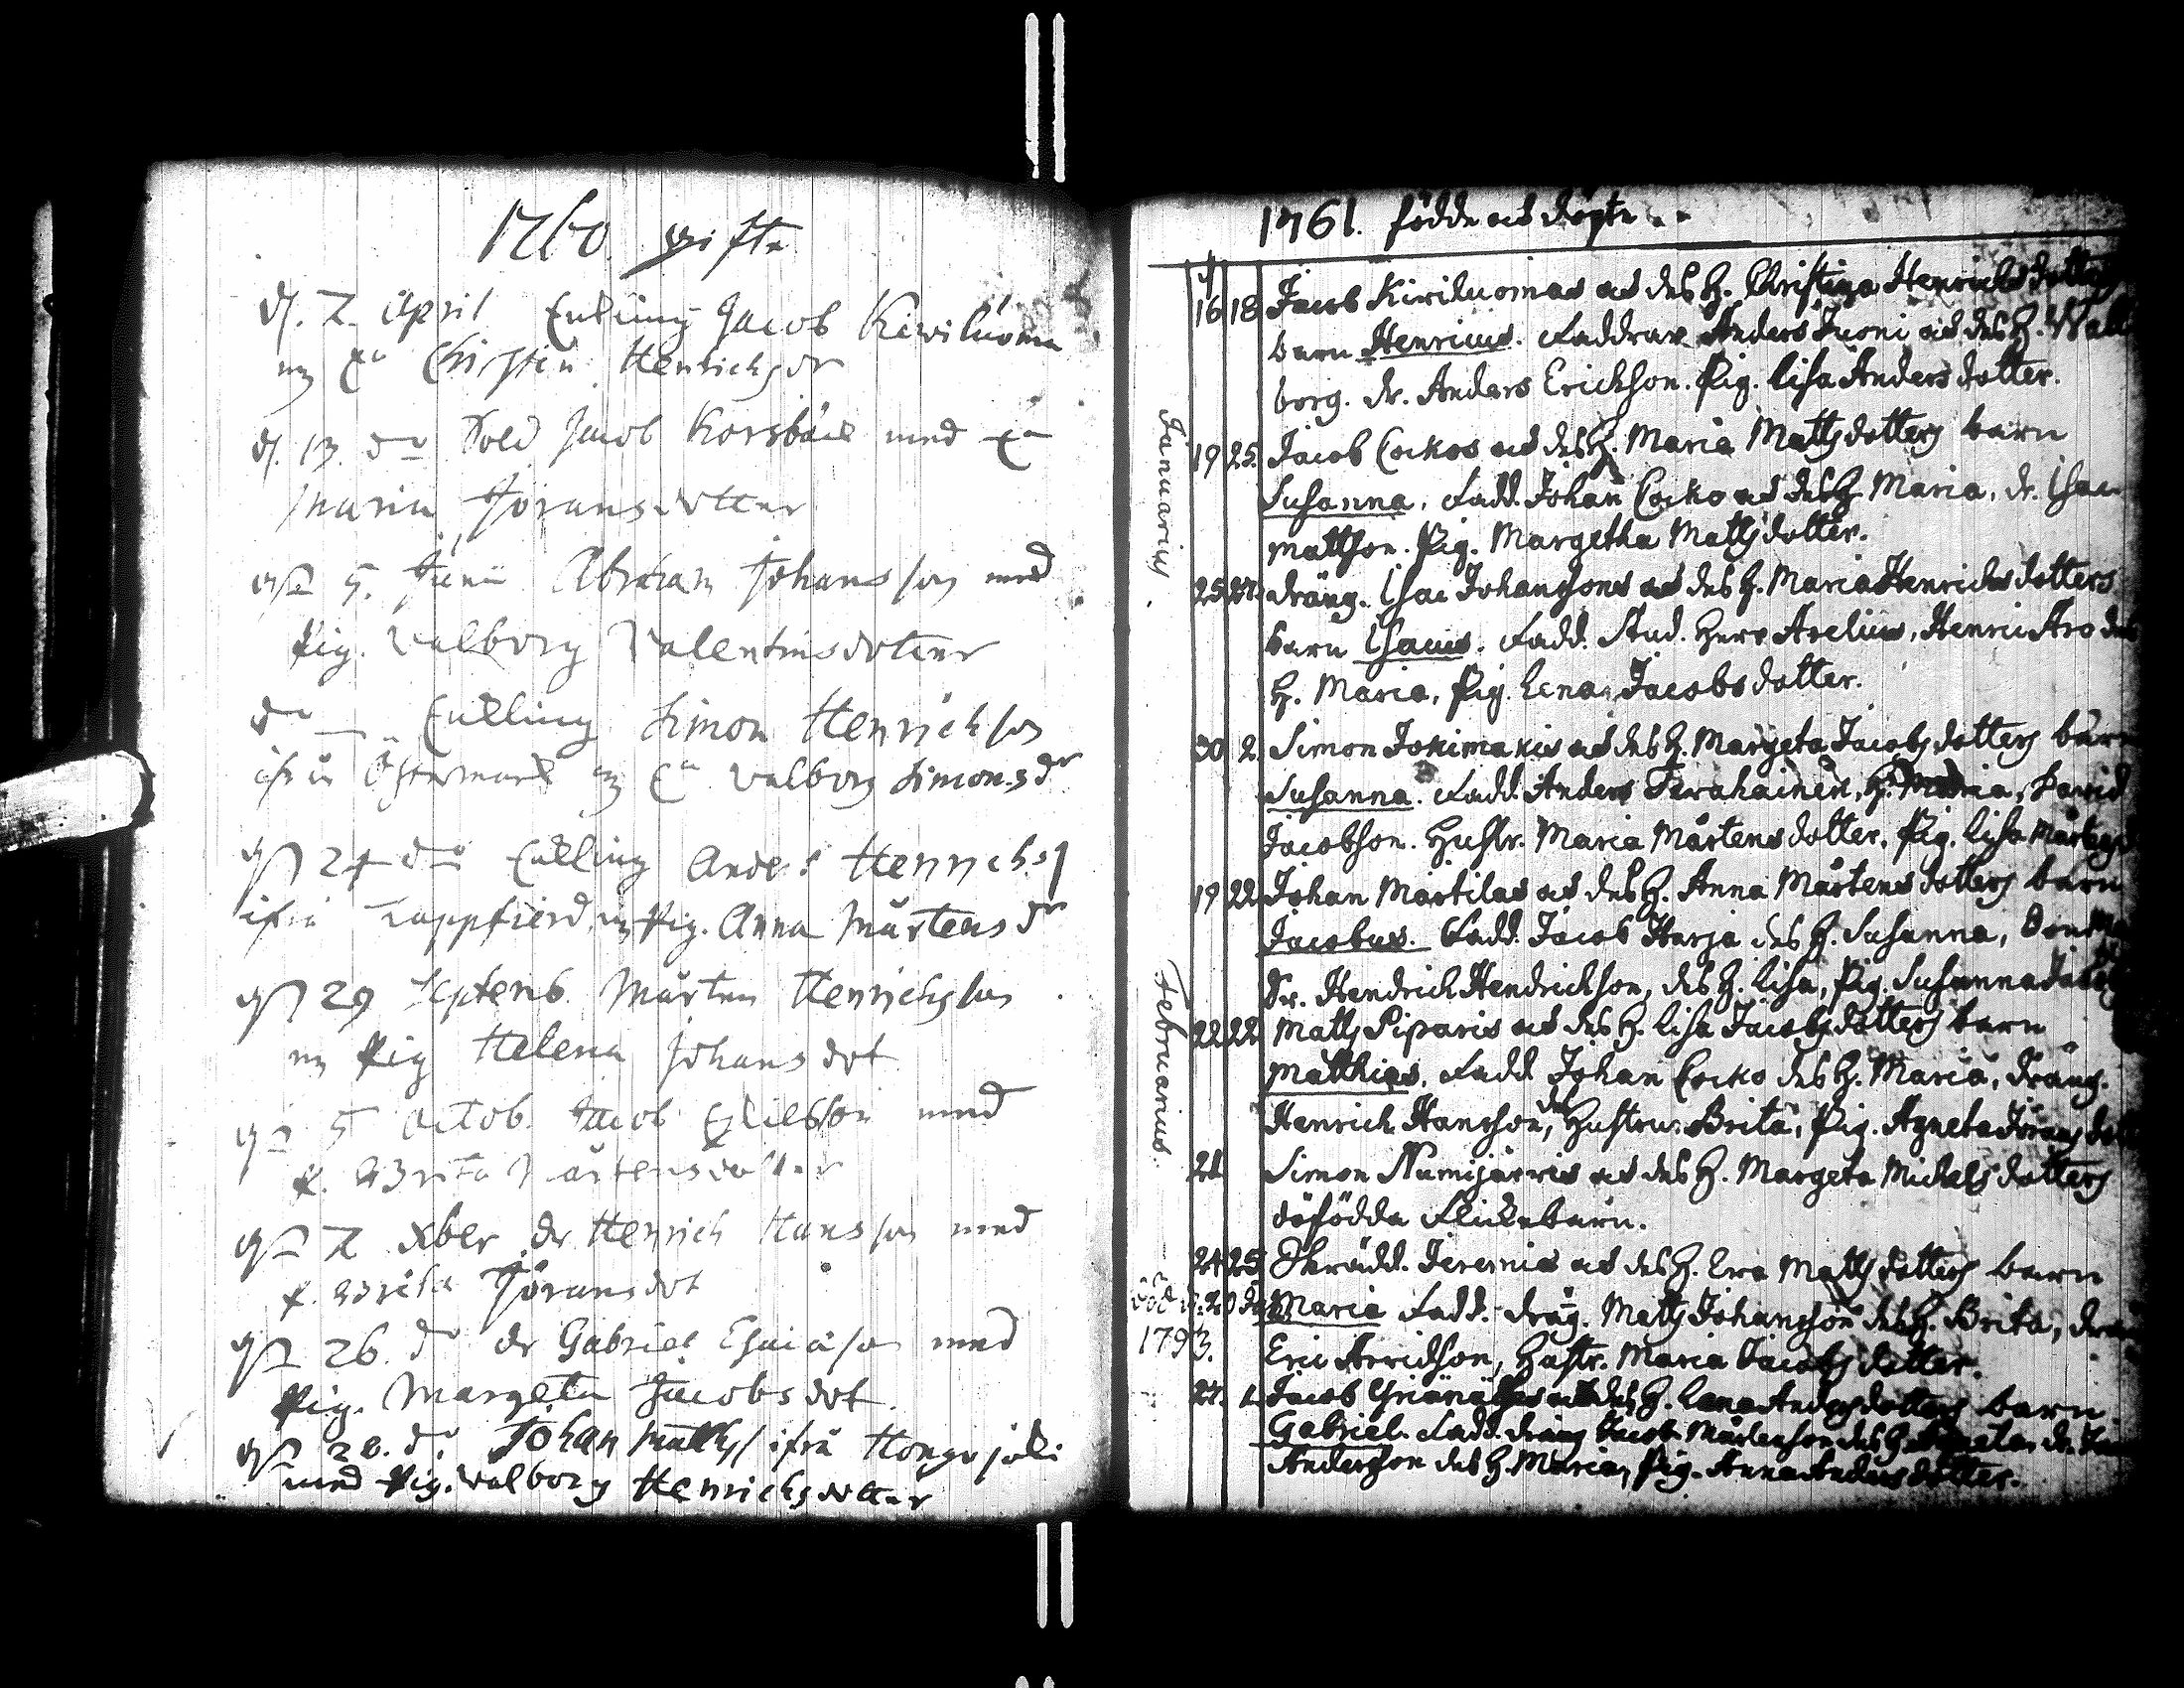 1760. gifte
d. 7. April Enkling Jacob Kiriluoma
m E. Christin Henrichsdr
d. 13. do Sold Jacob Korsbäck med E.
Maria Jöransdotter
d 5. Junii Abraham Johansson med
Pig. Valborg Valentinsdotter
do Enkling Simon Henrichson
ifrå Östermark m E. Valborg Simonsdr
d 24 do Enkling Anders Henrichss
ifrå Lappfierd m Pig. Anna Mårtensdr
d 29 Septemb. Mårten Henrichsson
m Pig Helena Johansdot
d 5 octob. Jacob Erilsson med
p. Brita Mårtensdotter
d 7 xber dr Henrich Hansson med
p. Brita Jöransdot
d 26. do dr Gabriel Esaiason med
Pig. Margeta Jacobsdot.
d 28. do Johan Mattss ifrå Kongejoki
med Pig. Valborg Henrichsdotter
1761. födde och döpte
Januarius
16 18 Jacob Kiriluomas och des H. Christina Henrichsdotters
barn Henricus. Faddrar Anders Juoni och des H. Wal
borg. dr. Anders Erickson. Pig. Lisa Andersdotter.
19 25. Jacob Cockos och des H. Maria Mattsdotters barn
Susanna. Fadd. Johan Cocko och des H. Maria, dr. Isac
Mattson. Pig. Margetha Mattsdotter.
25 27. dräng. Isac Johansons och des H. Maria Henricksdotters
barn Isacus. Fadd. Stud. Herr Arelius, Henric Aro des
H. Maria, Pig. Lena Jacobsdotter.
30 2. Simon Jokimakis och des H. Margeta Jacobsdotters barn
Susanna. Fadd. Anders Ferahainen, H. Maria, David
Jacobson. Hustr. Maria Mårtensdotter, Pig. Lisa Mårtensd
Februarius.
19 22 Johan Martilas och des H. Anna Mårtensdotters barn
Jacobus. Fadd. Jacob Harja des H. Susanna,
Sr. Hendrich Hendrickson, des H. Lisa, Pig. Susanna
22 22 Matts Piparis och des H. Lisa Jacobsdotters barn
Matthias. Fadd. Johan Cocko des H. Maria, dräng.
Henrich Hansson, des Hustru Brita, Pig. Agneta Jöransdott
21 Simon Numijärvis och des H. Margeta Michelsdotters
döfödda Flickebarn.
24 25 Skrädd. Jeremias och des H. Eva Mattsdotters barn
död d. 20 Maria Fadd. dräg. Matts Johansson des H. Brita, drän
1793. Eric Arvidson, Hustr. Maria Jacobsdotter.
27. 1. Jacob och des H. Lena Andersdotters barn
Gabriel. Fadd. dräng Jacob Mårtenson des H. dr.
Anderson des H. Maria, Pig. Anna Andersdotter.